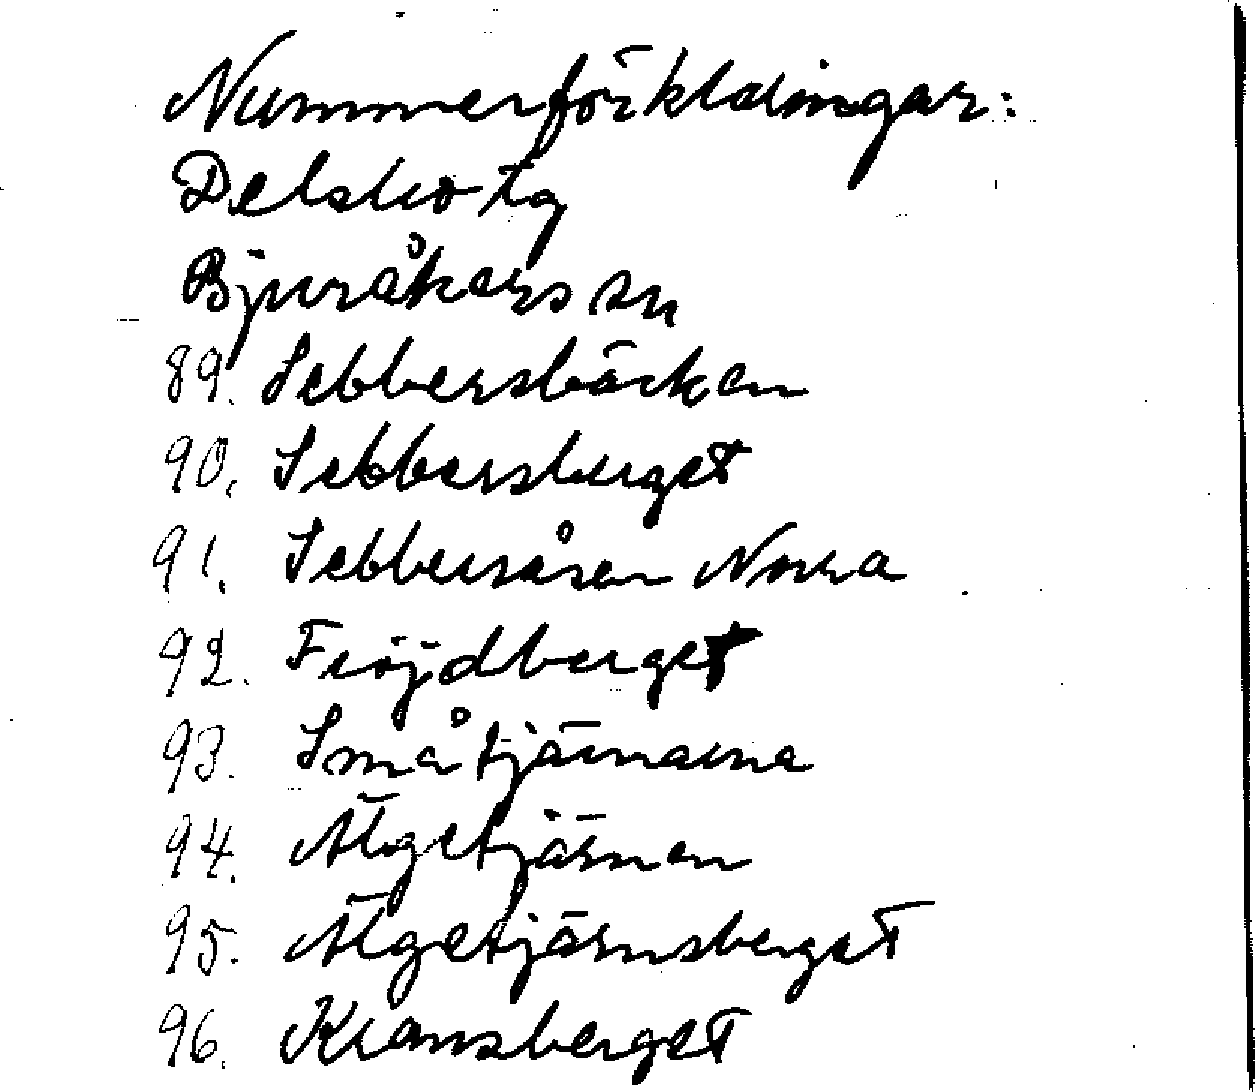 Nummerförklaringar:
Delsbo tg
Bjuråkers sn
89. Sebbersbäcken
90. Sebbersberget
91. Sebbersåsen Norra
92. Fröjdberget
93. Småtjärnarna
94. Älgetjärnen
95. Älgetjärnsberget
96. Kransberget